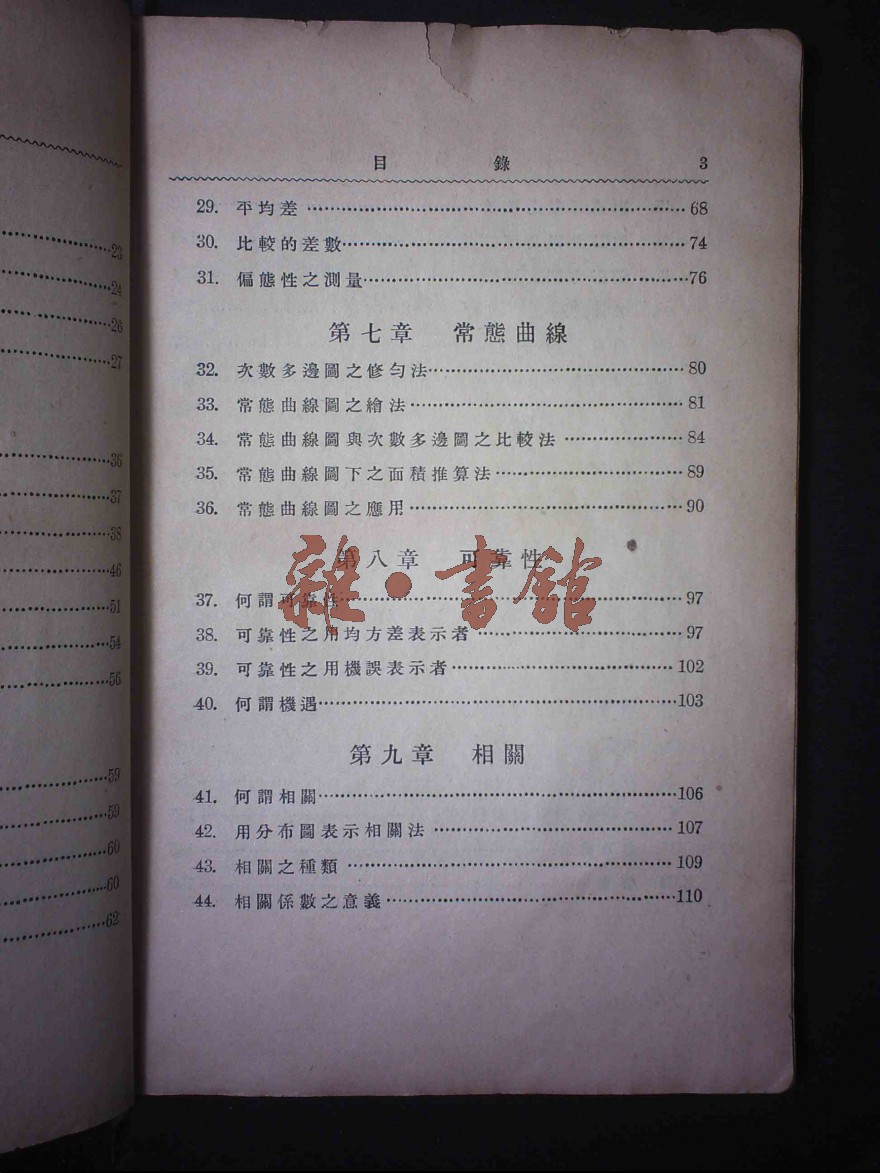 23
24
26
27
36
37
38
46
51
54
56
59
59
60
60
62
目錄 3
29. 平均差 68
30. 比較的差數 74
31. 偏態性之測量 76
第七章 常態曲線
32. 次數多邊圖之修勻法 80
33. 常態曲線圖之繪法 81
34. 常態曲線圖與次數多邊圖之比較法 84
35. 常態曲線圖下之面積推算法 89
36. 常態曲線圖之應用 90
第八章 可靠性
雜·書館
37. 何謂可靠性 97
38. 可靠性之用均方差表示者 97
39. 可靠性之用機誤表示者 102
40. 何謂機遇 103
第九章 相關
41. 何謂相關 106
42. 用分布圖表示相關法 107
43. 相關之種類 109
44. 相關係數之意義 110